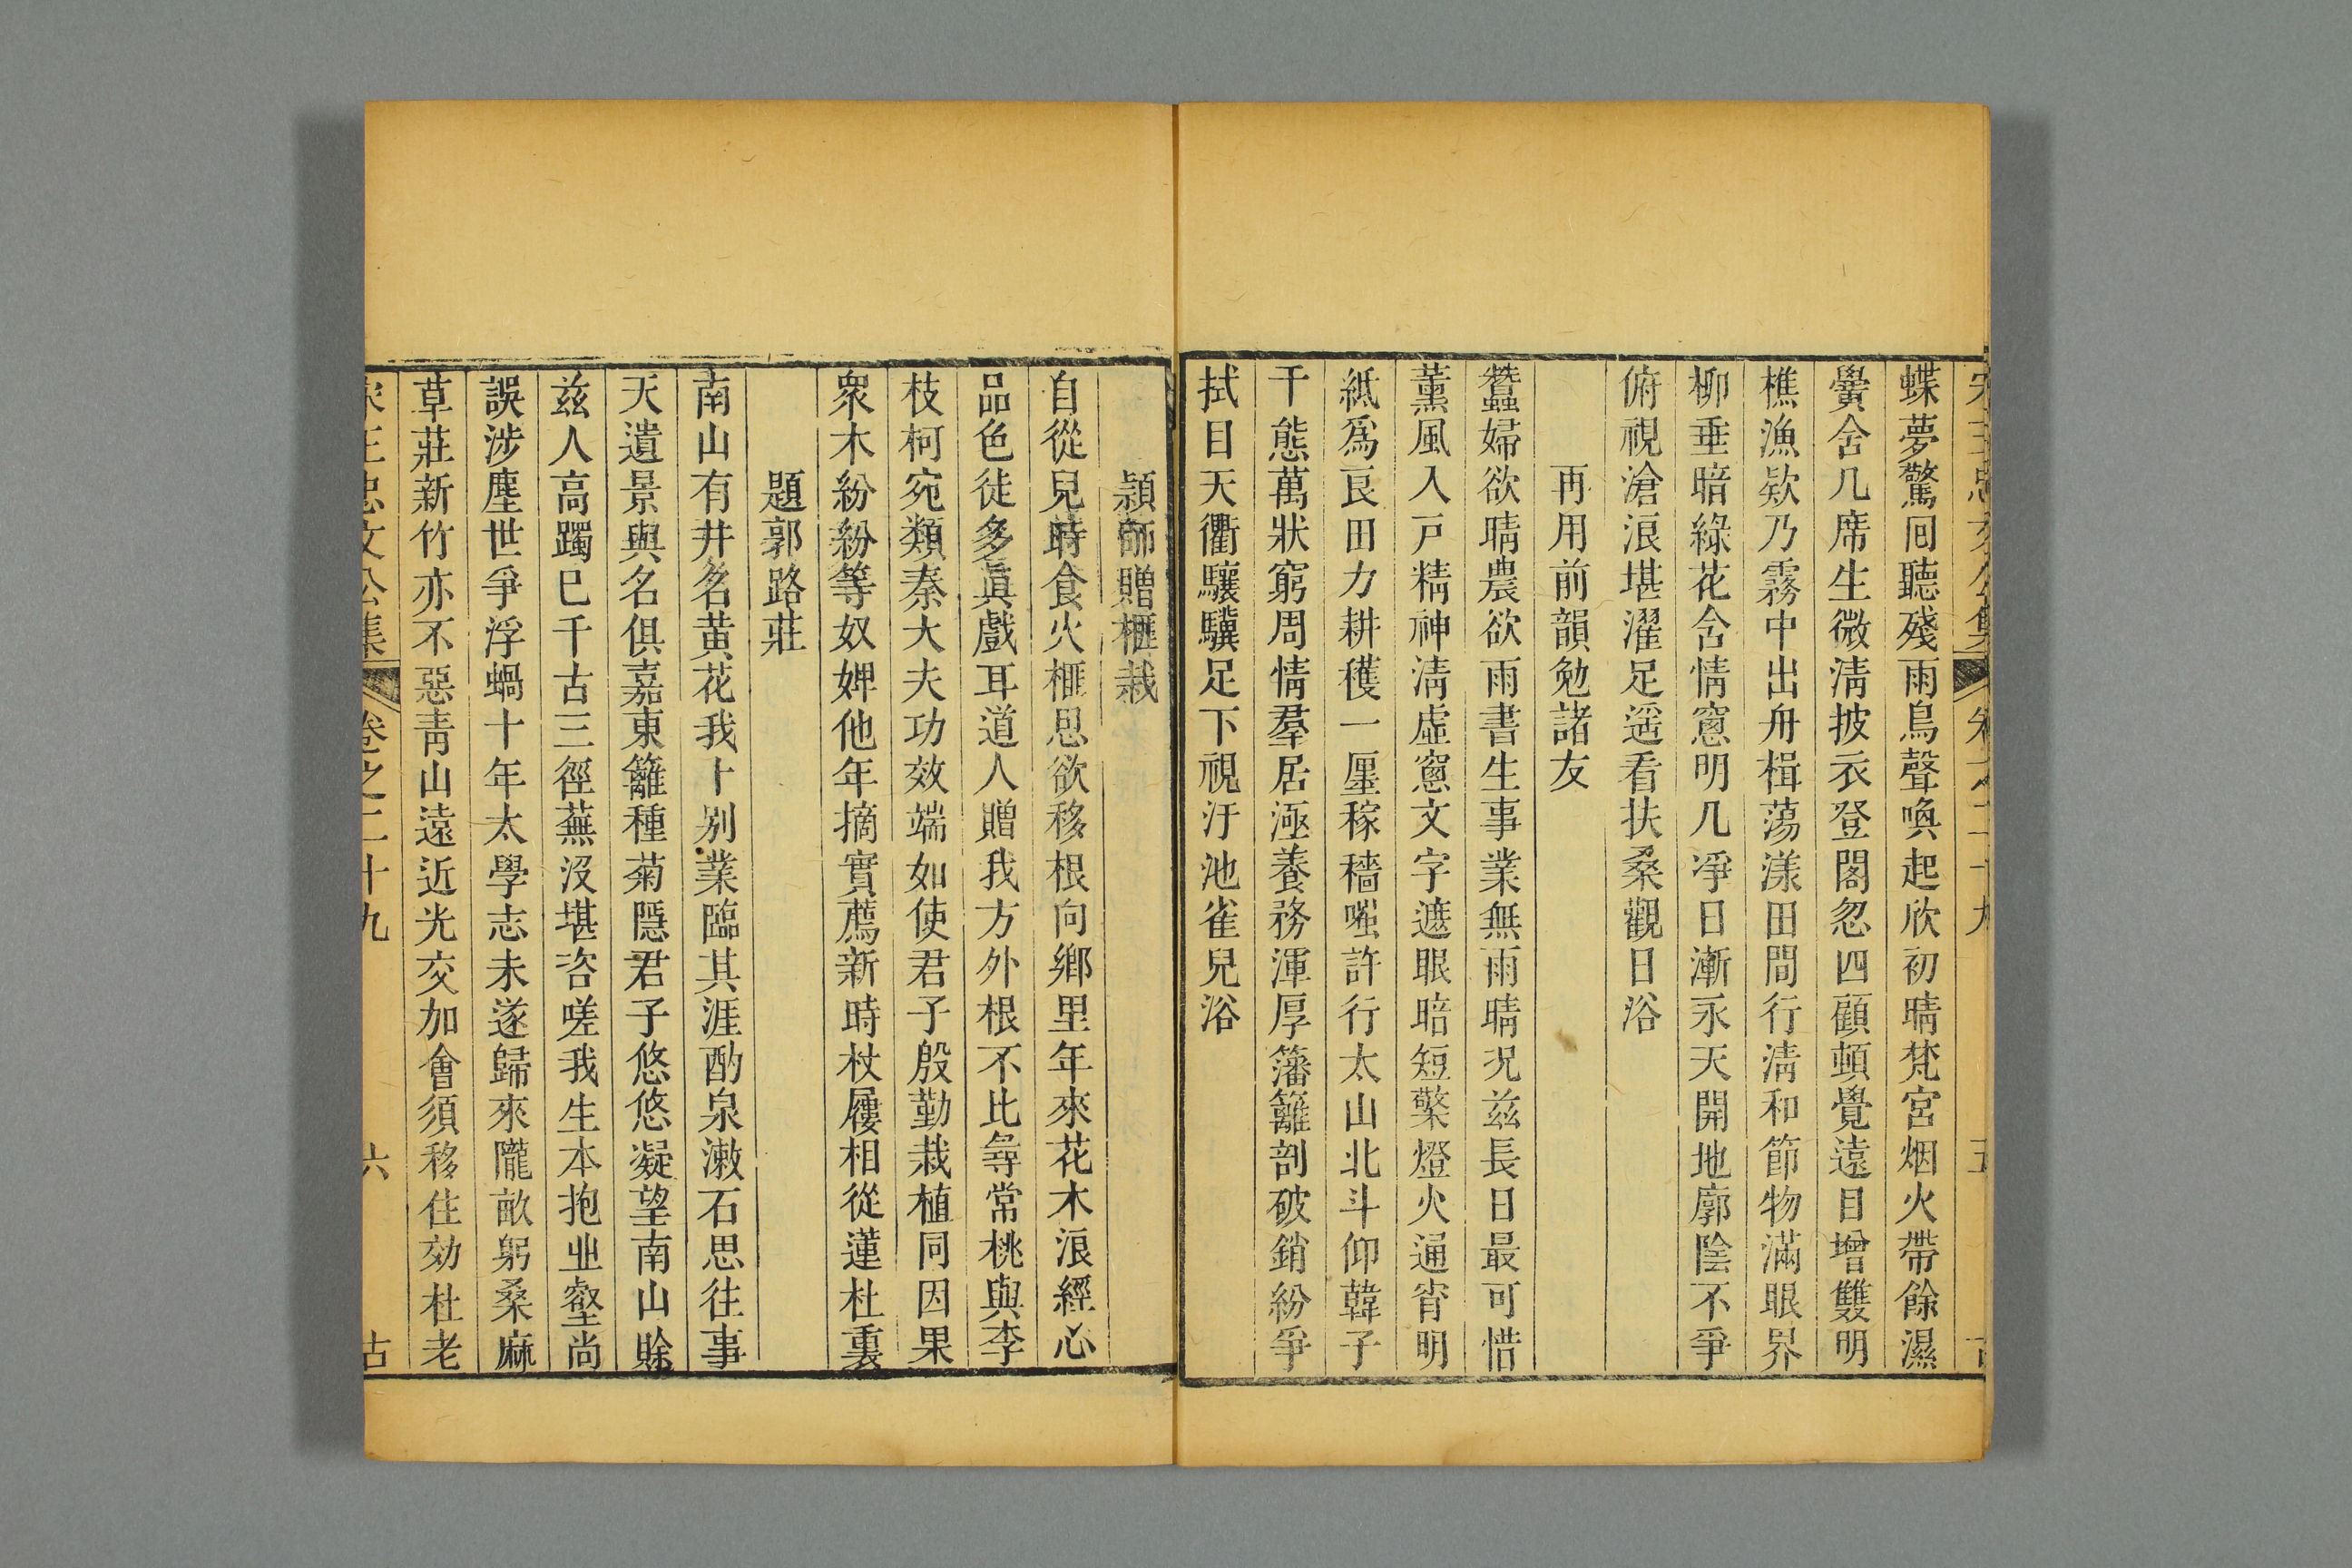 宋王忠文公集 卷之二十九 五
蝶夢驚囘聽殘雨鳥聲喚起欣初晴梵宮烟火帶餘濕
黌舍几席生微淸披衣登閣忽四顧頓覺遠目增雙明
樵漁欵乃霧中出舟楫蕩漾田間行淸和節物滿眼界
柳垂暗綠花含情窻明几凈日漸永天開地廓陰不爭
俯視滄浪堪濯足遥看扶桑觀日浴
再用前韻勉諸友
蠶婦欲晴農欲雨書生事業無雨晴况兹長日最可惜
薰風入戸精神淸虛窻文字遮眼暗短檠燈火通宵明
紙爲良田力耕穫一廛稼穡嗤許行太山北斗仰韓子
千態萬狀窮周情羣居極養務渾厚籓籬剖破銷紛爭
拭目天衢驤驥足下視汙池雀兒浴
頴師贈榧栽
自從兒時食火榧思欲移根向鄉里年來花木浪經心
品色徒多眞戲耳道人贈我方外根不比尋常桃與李
枝柯宛類秦大夫功效端如使君子殷勤栽植同因果
衆木紛紛等奴婢他年摘實薦新時杖屨相從蓮杜裏
題郭路莊
南山有井名黃花我卜别業臨其涯酌泉漱石思往事
天遺景與名俱嘉東籬種菊隱君子悠悠凝望南山賖
兹人高躅已千古三徑蕪没堪咨嗟我生本抱丘壑尚
誤涉塵世爭浮蝸十年太學志未遂歸來隴畝躬桑麻
草莊新竹亦不惡靑山遠近光交加會須移住効杜老
宋王忠文公集 卷之二十九 六 古